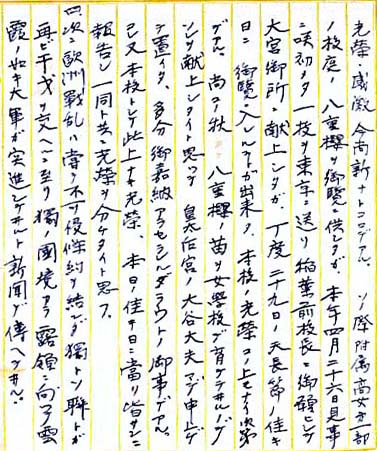 光榮・感激、今尚新ナトコロデアル。ソノ際附属高女第一部
ノ校庭ノ八重櫻ヲ御覧ニ供シタガ、本年四月二十六日見事
ニ咲初メタ一枝ヲ東京ニ送リ稲葉前校長ニ御願シテ
大宮御所ニ献上シタガ、丁度二十九日ノ天長節ノ佳キ
日ニ御覧ニ入レル事ガ出来タ。本校ノ光榮コノ上モナイ次第
デアル。尚コノ八重櫻ノ苗ヲ女學校デ育ケテヰルノデ
ソレヲ献上シタイト思ッテ皇太后宮ノ大谷大夫マデ申シデ
テ置イタ。多分御嘉納アラセラレルダラウトノ御事デアル。
己又本校トシテ此上ナキ光榮、本日ノ佳キ日ニ當リ皆サンニ
報告シ一同ト共ニ光榮ヲ分ケタイト思フ。
次ニ歐洲戰乱ハ嘗テ不可侵條約ヲ結ンダ獨トソ聯トガ
再ビ干戈ヲ交ヘルニ至リ獨ノ國境カラ露領ニ向ヲ雲
霞ノ如キ大軍ガ突進シテヰルト新聞デ傳ヘテヰル。